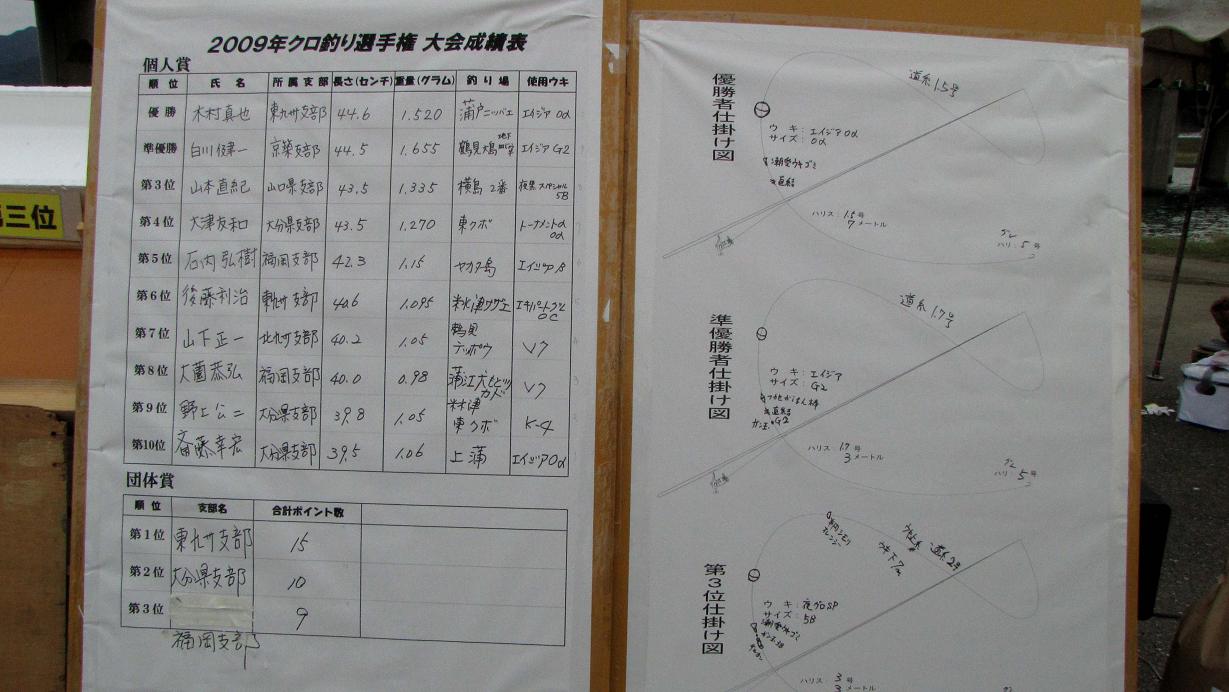 2009年クロ釣り選手権 大会成績表
個人賞
順位 氏名 所属支部 長さ(センチ) 重量(グラム) 釣り場 使用ウキ
優勝 木村真也 東九州支部 44.6 1.520 蒲戸ニッバエ エイジア 0α
準優勝 白川健一 京築支部 44.5 1.655 鶴見大島 地下 エイジア G2
第3位 山本直紀 山口県支部 43.5 1.335 横島 2番 夜黒スペシャル 5B
第4位 大津友和 大分県支部 43.5 1.270 東クボ トーナメントα 0α
第5位 石内弘樹 福岡支部 42.3 1.15 ヤカタ島 エイジア B
第6位 後藤利治 東九州支部 40.6 1.095 米水津サザエ エキパートグレ 0C
第7位 山下正一 北九州支部 40.2 1.05 鶴見テッポウ V7
第8位 大薗恭弘 福岡支部 40.0 0.98 蒲江 カド V7
第9位 野上公二 大分県支部 39.8 1.05 東クボ K-4
第10位 斎藤幸宏 大分県支部 39.5 1.06 上浦 エイジア 0α
団体賞
順位 支部名 合計ポイント数
第1位 東九州支部 15
第2位 大分県支部 10
第3位 9
福岡支部
優勝者仕掛け図
道糸 1.5号
ウキ：エイジア 0α
サイズ：0α
潮受ウキゴミ
直結
ハリス：1.5号
7メートル
グレ
ハリ：5号
準優勝者仕掛け図
道糸 1.7号
ウキ：エイジア
サイズ：G2
直結
ガン玉 G2
ハリス：1.7号
3メートル
グレ
ハリ：5号
第3位仕掛け図
道糸 2号
ウキ下7m
ウキ：夜グロSP
サイズ：5B
潮受ウキゴミ
ハリス：3号
3メートル
第三位